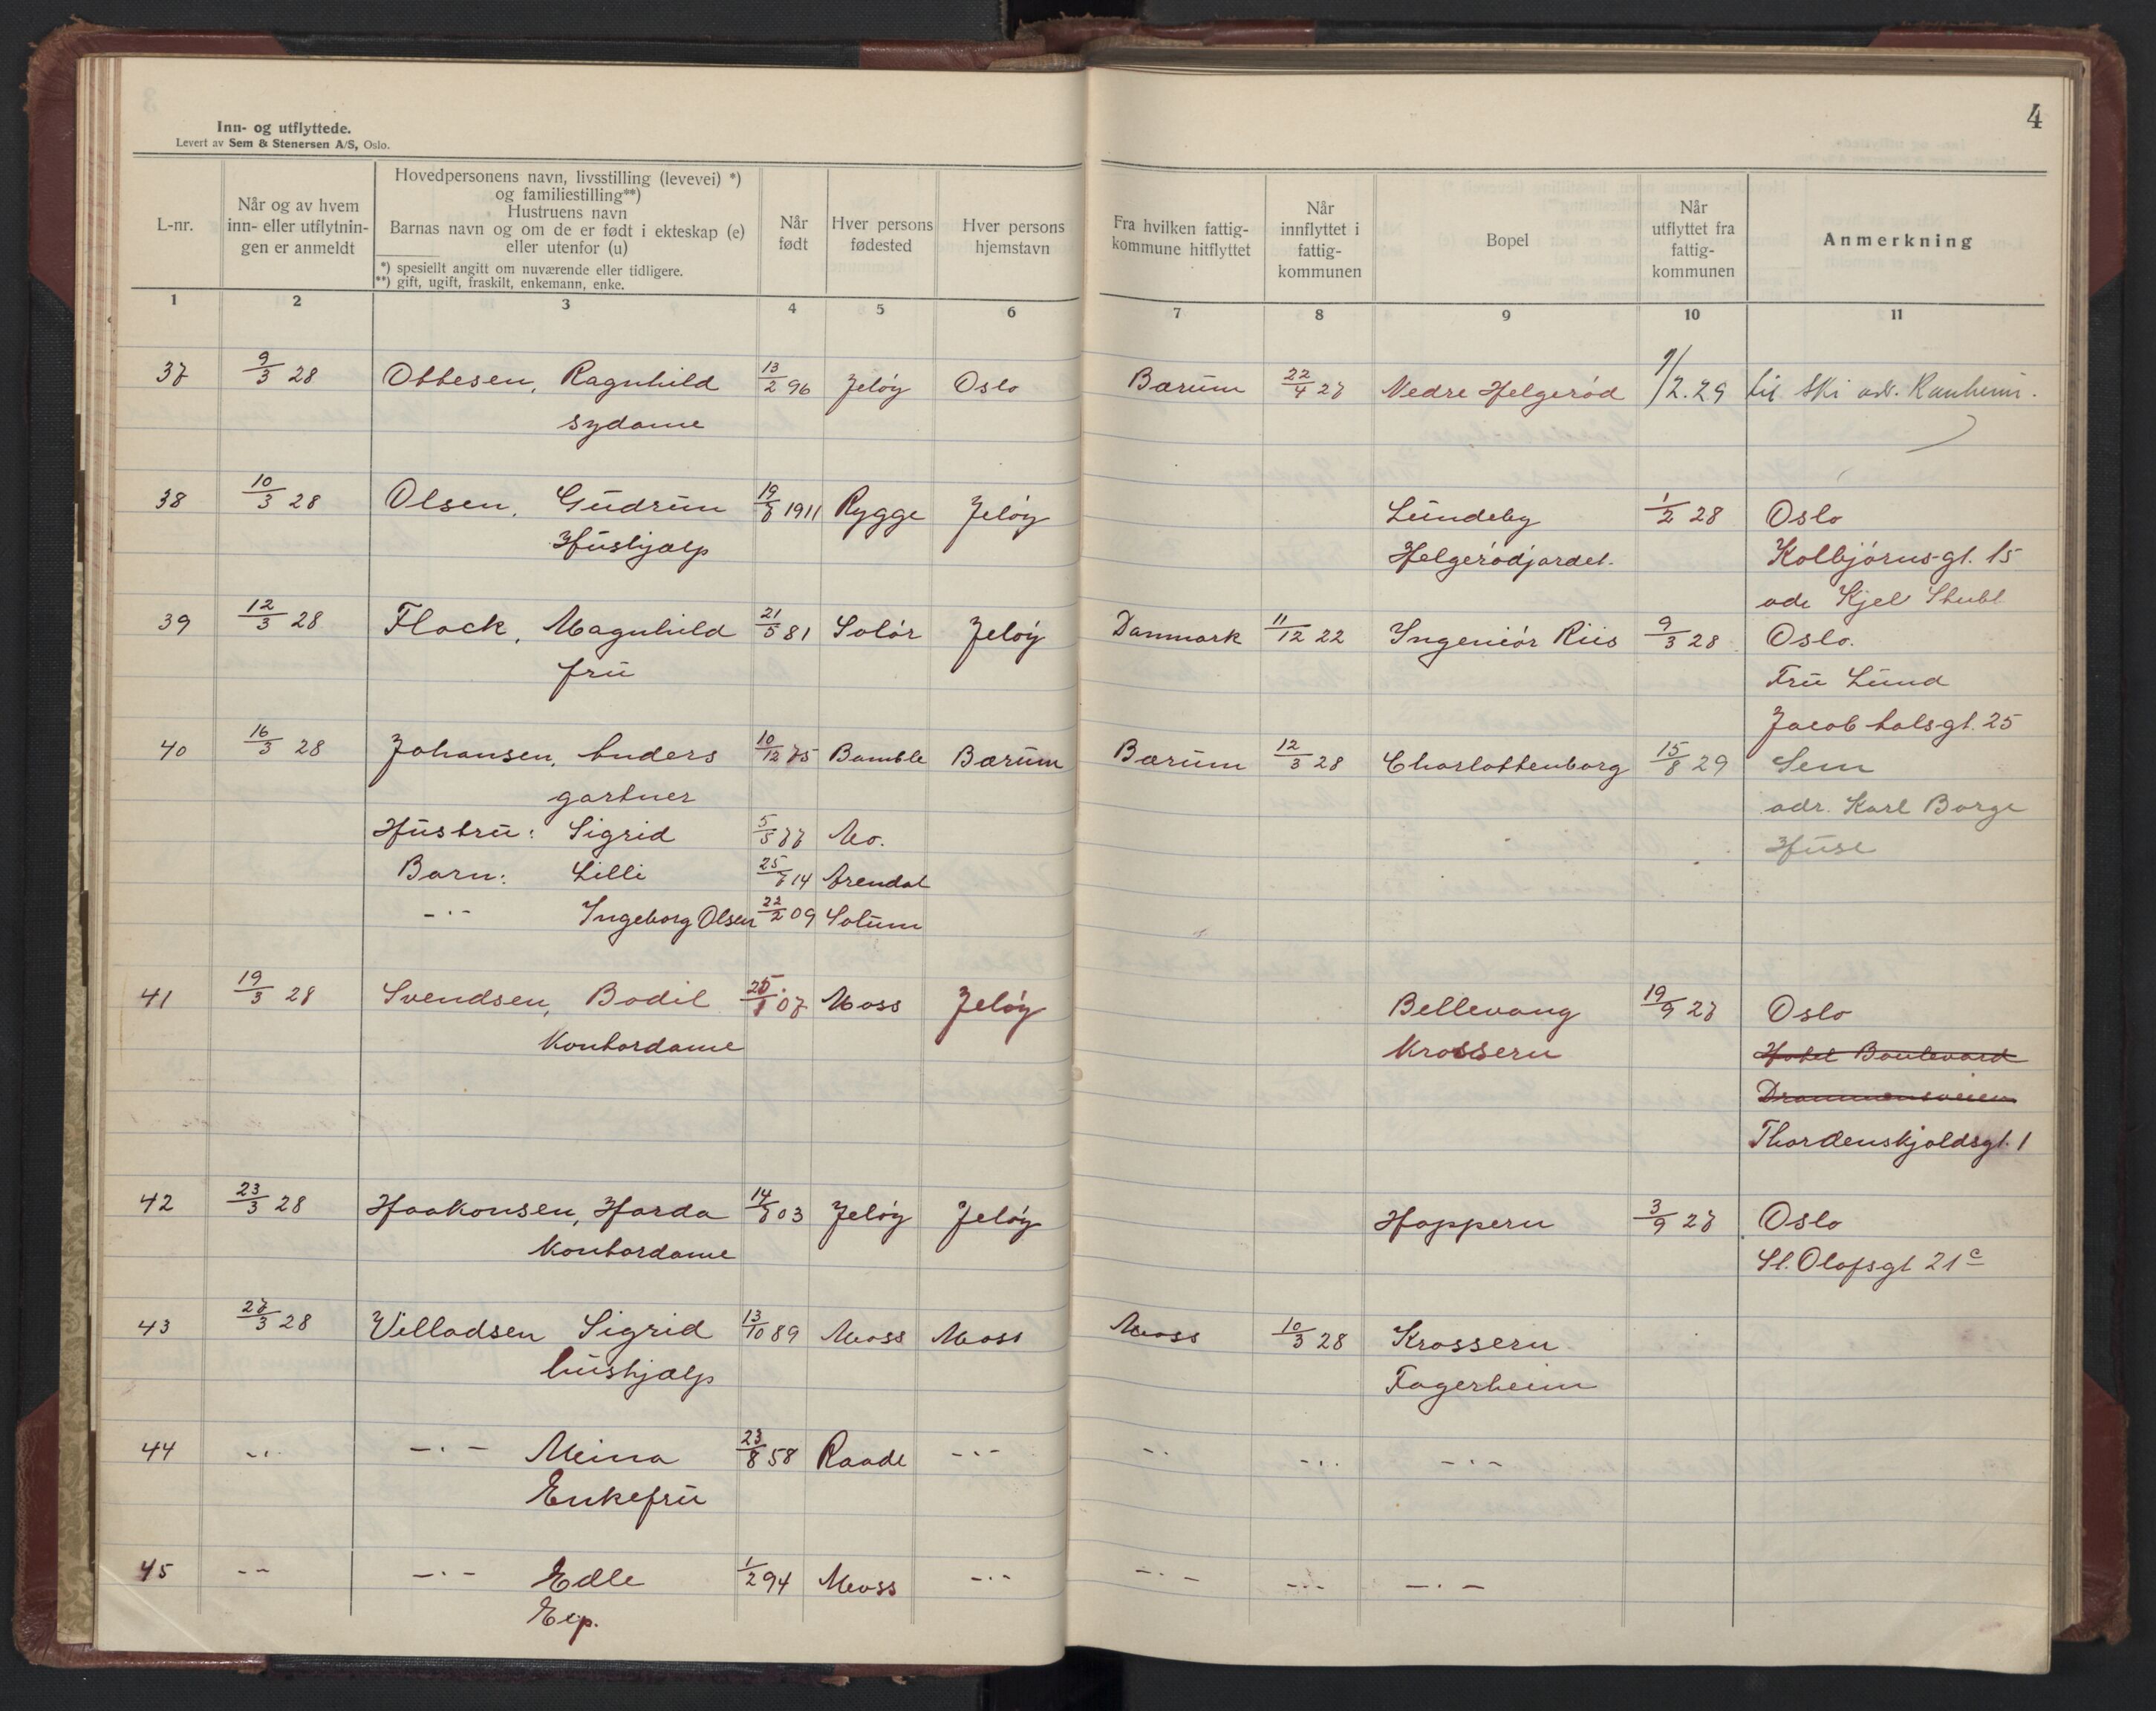 4
Inn- og utflyttede.
Levert av Sem & Stenersen A/S, Oslo.
L-nr.
Når og av hvem
inn- eller utflytnin-
gen er anmeldt
Hovedpersonens navn, livsstilling (levevei) *)
og familiestilling**)
Hustruens navn
Barnas navn og om de er født i ekteskap (e)
eller utenfor (u)
*) spesiellt angitt om nuværende eller tidligere.
**) gift, ugift, fraskilt, enkemann, enke.
Når
født
Hver persons
fødested
Hver persons
hjemstavn
Fra hvilken fattig-
kommune hitflyttet
Når
innflyttet i
fattig-
kommunen
Bopel
Når
utflyttet fra
fattig-
kommunen
Anmerkning
1 2 3 4 5 6 7 8 9 10 11
37 9/3 28 Ottesen, Ragnhild 13/2 96 Jeløy Oslo Bærum 22/4 27 Nedre Helgerød /2.29 til Ski adr.
sydame
38 10/3 28 Olsen, Gudrun 19/ 1911 Rygge Jeløy Lundeby 1/2 28 Oslo
Hushjælp Helgerødjordet. Kolbjørnsgt. 15
adr Kjel Stubl
39 12/3 28 Flock, Magnhild 21/5 81 Solør Jeløy Danmark 11/12 22 Ingeniør Riis 9/3 28 Oslo.
fru Fru Lund
Jacob halsgt. 25
40 16/3 28 Johansen, Anders 10/12 75 Bamble Bærum Bærum 12/3 28 Charlottenborg 15/8 29 Sem
gartner adr. Karl Borge
Hustru: Sigrid 5/5 77 Mo. Huse
Barn: Lilli 25/7 14 Arendal
-·- Ingeborg Olsen 22/2 09 Solum
41 19/3 28 Svendsen, Bodil 07 Moss Jeløy Bellevang 19/9 27 Oslo
Kontordame Krossern Hotel Boulevard
Drammensveien
Thordenskjoldsgt. 1
42 23/3 28 Haakonsen, Harda 14/ 03 Jeløy Jeløy Hoppern 3/9 27 Oslo
Kontordame St. Olafsgt 21c
43 27/3 28 Villadsen Sigrid 13/10 89 Moss Moss Moss 10/3 28 Krossern
hushjælp Fagerheim
44 -·- -·- Meina 23/8 58 Raade -·- -·- -·- -·-
Enkefru
45 -- -·- Edle 1/2 94 Moss -·- -·- -·- -·-
Exp.